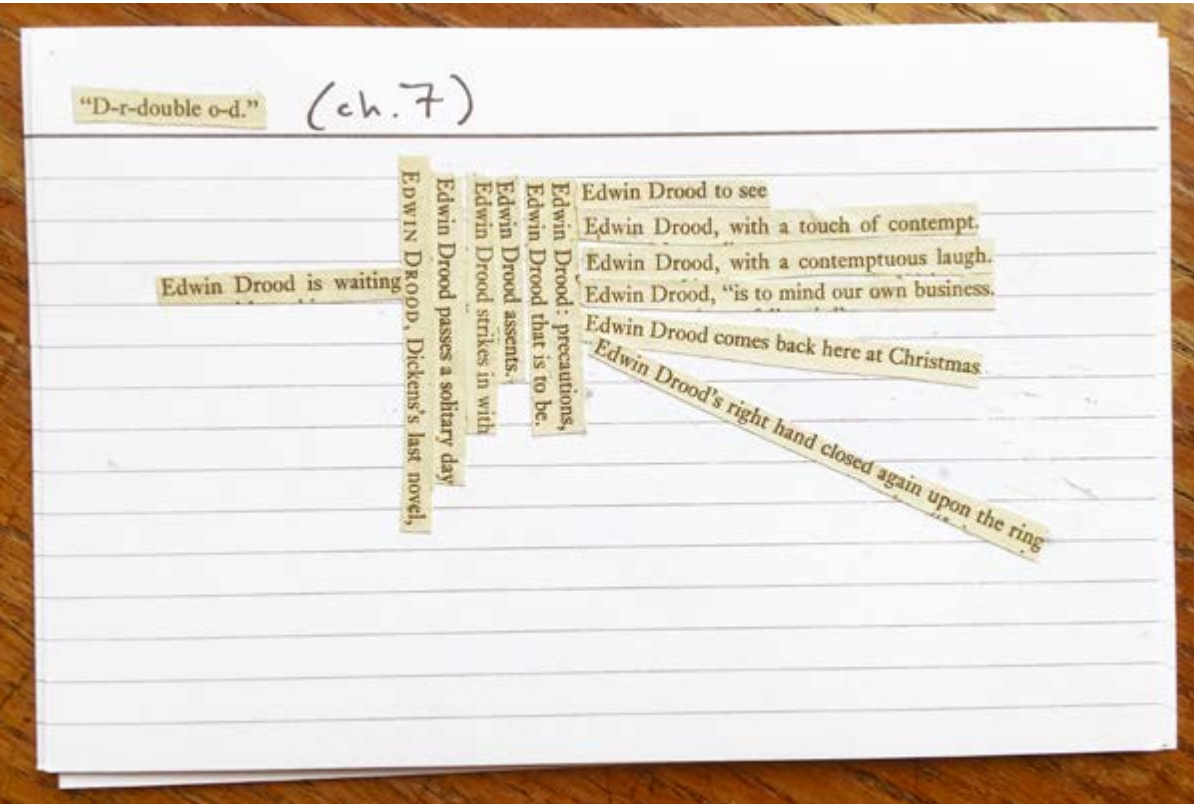 “D-r-double o-d.” (ch. 7)
Edwin Drood is waiting
EDWIN DROOD, Dickens's last novel,
Edwin Drood passes a solitary day
Edwin Drood strikes in with
Edwin Drood assents.
Edwin Drood that is to be.
Edwin Drood: precautions,
Edwin Drood to see
Edwin Drood, with a touch of contempt.
Edwin Drood, with a contemptuous laugh.
Edwin Drood, “is to mind our own business.
Edwin Drood comes back here at Christmas
Edwin Drood's right hand closed again upon the ring